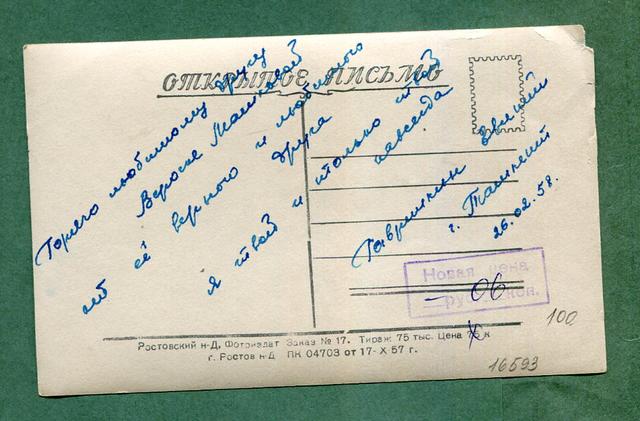 ОТКРЫТОЕ ПИСЬМО
Горячо любимому другу
Верочке
от её верного и любимого
друга
я твой и только твой
навсегда
Гавришкин
г. Ташкент
26.02.58.
Новая цена
— руб. 06 коп.
Ростовский н-Д. Фотоиздат Заказ № 17. Тираж 75 тыс. Цена к
г. Ростов н-Д ПК 04703 от 17-X-57 г.
100
16593